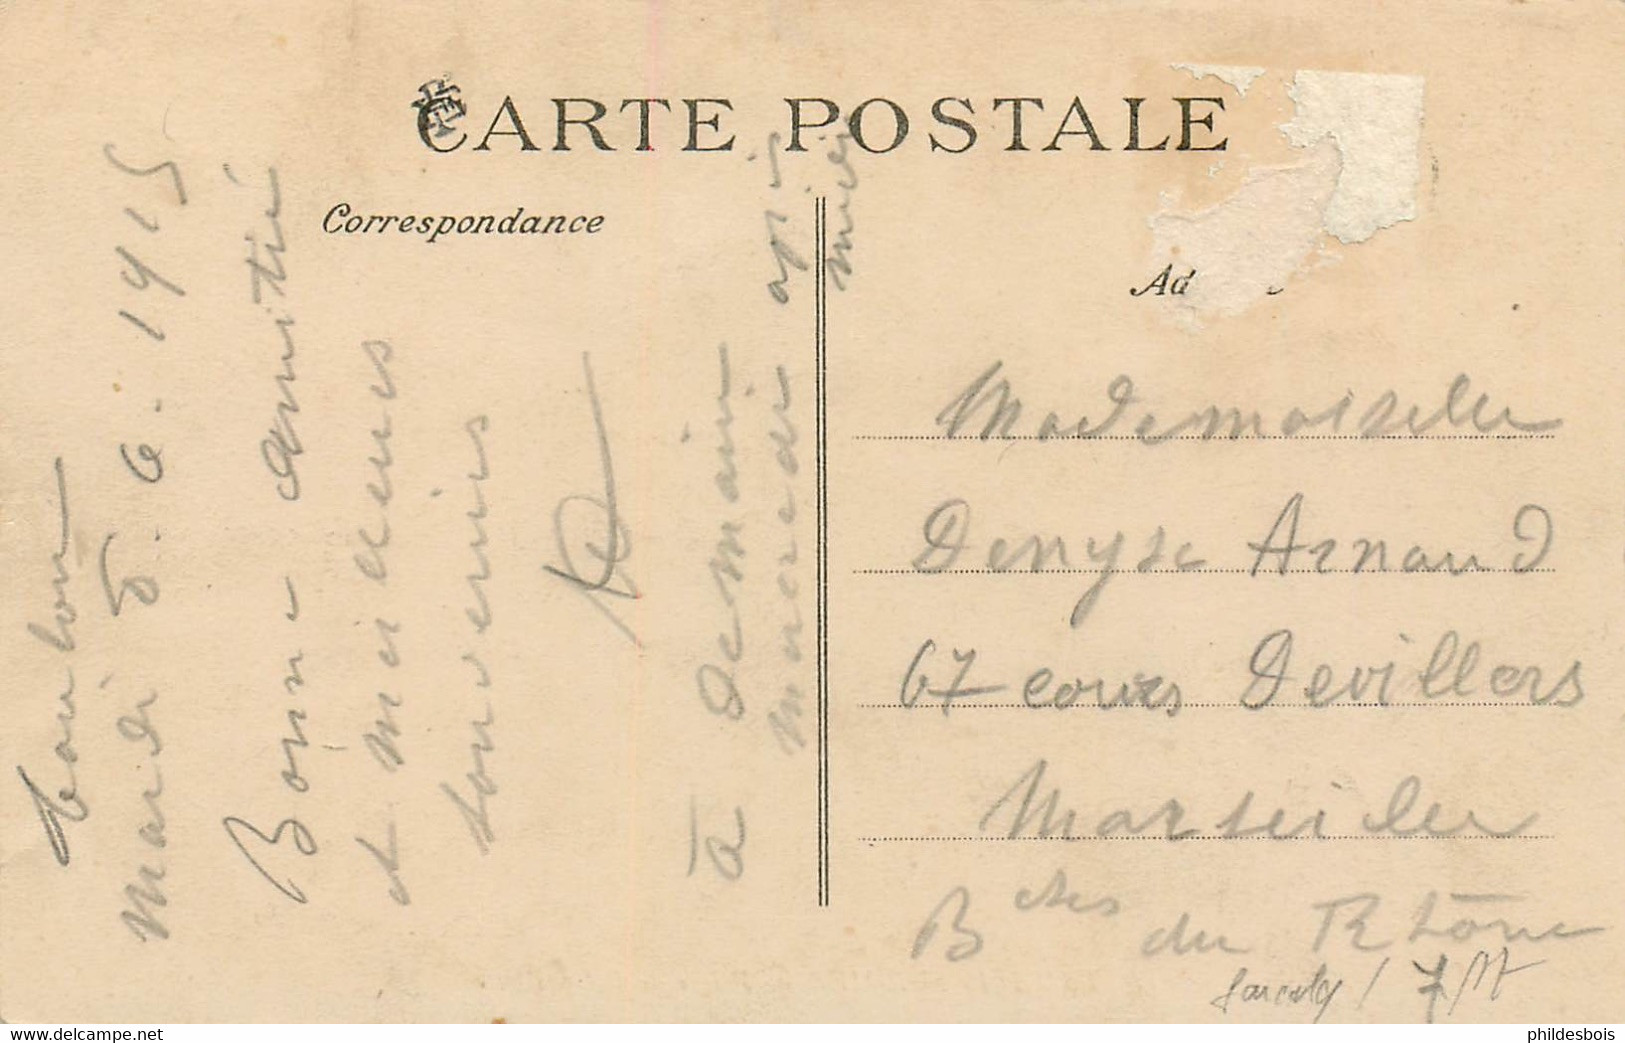 CARTE POSTALE
Correspondance
Ad
Toulon
Mardi 8.6.1915
Bonne amitié
et meilleurs
souvenirs
à demain
mercredi
Mademoiselle
Denyse Arnaud
67 cours Devillers
Marseille
Bches du Rhône
phildesbois